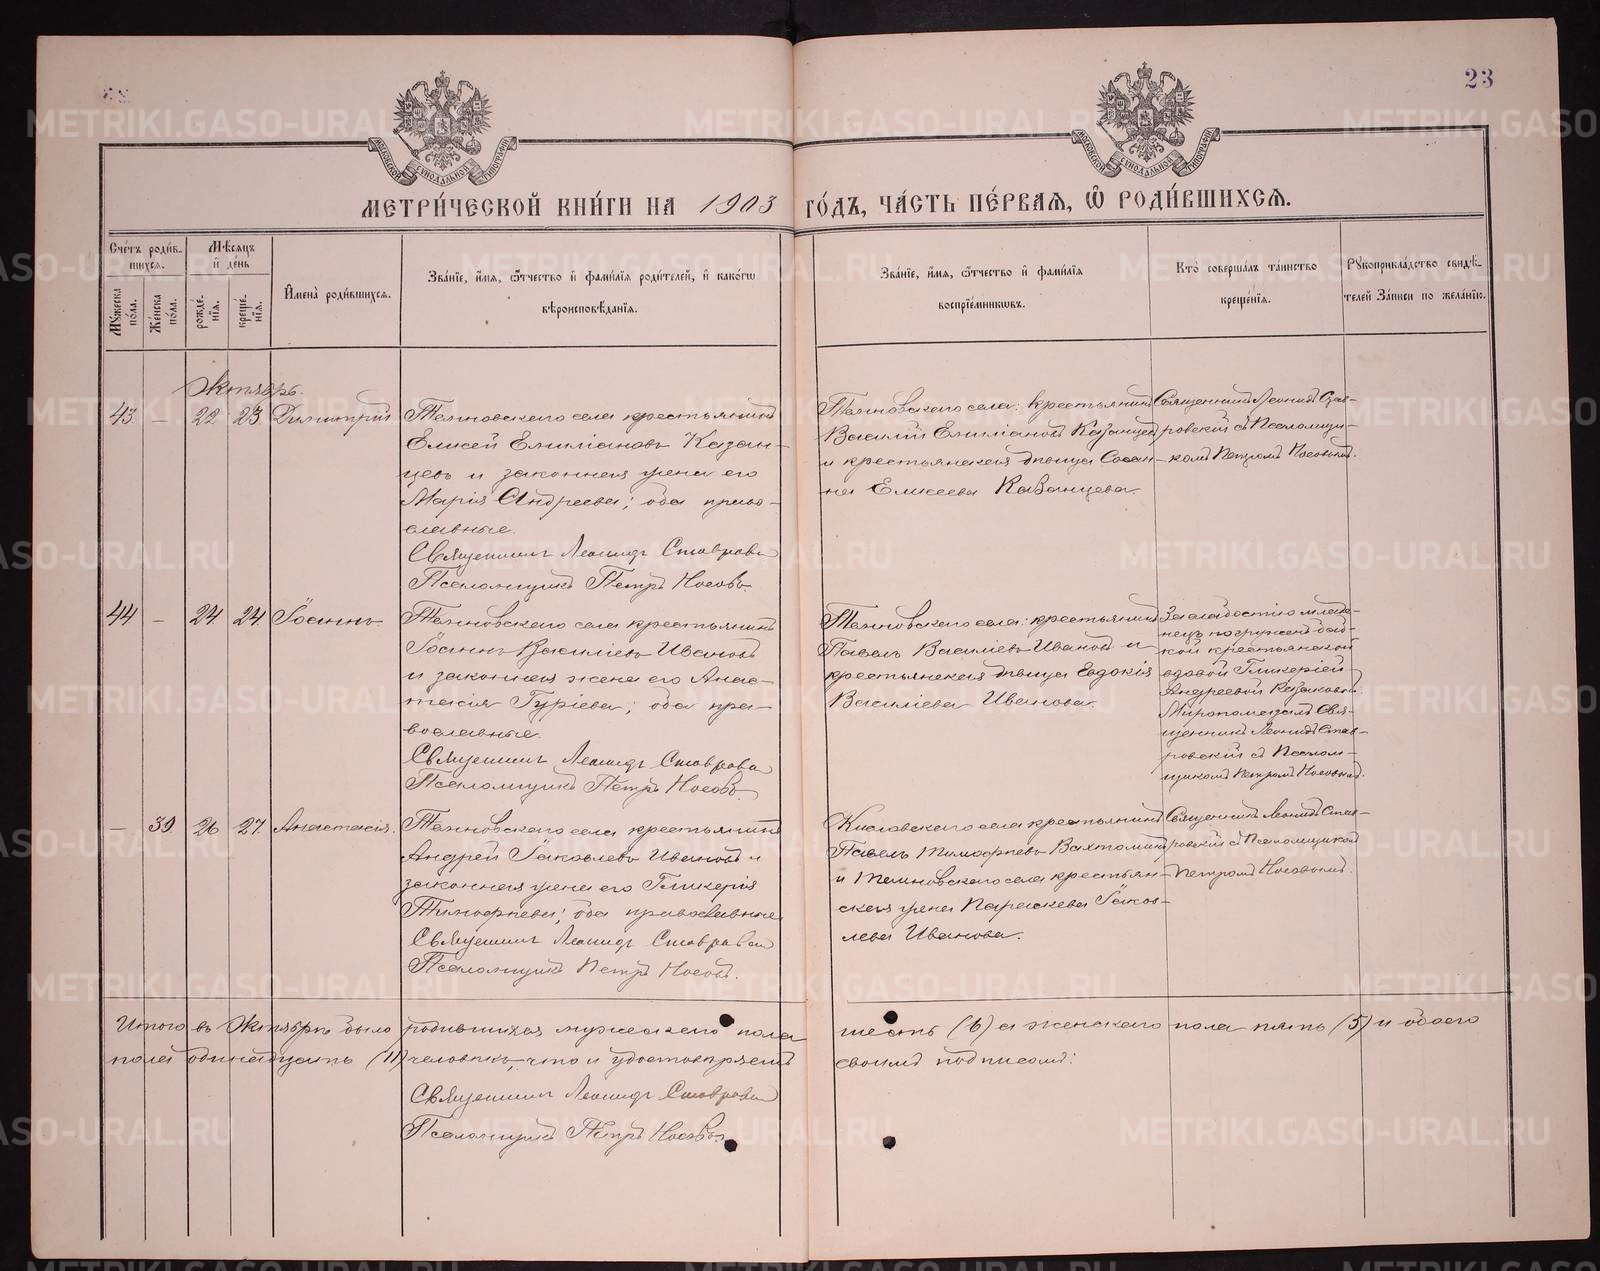 23
МЕТРИ́ЧЕСКОЙ КНИ́ГИ НА 1903 ГО́ДЪ, ЧА́СТЬ ПЕ́РВАЯ, Ѡ РОДИ́ВШИХСЯ.
Сче́тъ роди́в-
шихся.
Мꙋ́жеска по́ла.
Же́нска по́ла.
Мѣ́сяцъ и҆ де́нь
рожде́нїя.
креще́нїя.
И҆мена̀ роди́вшихся.
Зва́нїе, и҆́мя, ѻ҆́тчество и҆ фами́лїя роди́телей, и҆ како́гѡ
вѣроисповѣ́данїя.
Зва́нїе, и҆́мя, ѻ҆́тчество и҆ фами́лїя
воспрїе́мниковъ.
Кто̀ соверша́лъ та́инство
креще́нїя.
Рꙋкоприкла́дство свидѣ́-
телей За́писи по жела́нїю.
Октябрь.
43 — 22 23 Димитрій
Теченскаго села крестьянинъ
Елисей Емиліановъ Казан-
цевъ и законная жена его
Марія Андреева; оба право-
славные.
Священникъ Леонидъ Ставровскій
Псаломщикъ Петръ Носовъ.
села: крестьянинъ
Василій Емиліановъ Казанцевъ
и крестьянская дѣвица Сосан-
на Елисеева Казанцева.
Священникъ Леонидъ Став-
ровскій съ Псаломщи-
комъ Петромъ Носовымъ.
44 — 24 24 Іоаннъ
села крестьянинъ
Іоаннъ Василіевъ Ивановъ
и законная жена его Анас-
тасія Гуріева; оба пра-
вославные.
Священникъ Леонидъ Ставровскій
Псаломщикъ Петръ Носовъ.
села: крестьянинъ
Павелъ Василіевъ Ивановъ и
крестьянская дѣвица Евдокія
Василіева Иванова.
За слабостію младе-
нецъ погруженъ баб-
кой крестьянской
вдовой Гликеріей
Андреевой Казаковой.
Миропомазалъ Свя-
щенникъ Леонидъ Став-
ровскій съ Псалом-
щикомъ Петромъ Носовымъ.
— 39 26 27 Анастасія.
села крестьянинъ
Андрей Іаковлевъ Ивановъ и
законная жена его Гликерія
Тимофеева; оба православные
Священникъ Леонидъ Ставровскій
Псаломщикъ Петръ Носовъ.
Кисловскаго села крестьянинъ
Павелъ Тимофеевъ Вахтоминъ
и села крестьян-
ская жена Параскева Іаков-
лева Иванова.
Священникъ Леонидъ Став-
ровскій съ Псаломщикомъ
Петромъ Носовымъ.
Итого въ Октябрѣ было родившихся мужескаго пола шесть (6) а женскаго пола пять (5) и обоего
пола одинадцать (11) человѣкъ, что и удостовѣряемъ своимъ подписомъ:
Священникъ Леонидъ Ставровскій
Псаломщикъ Петръ Носовъ.
METRIKI.GASO-URAL.RU